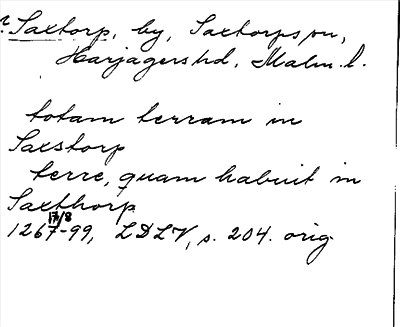 Saxtorp, by, Saxtorps sn,
Harjagers hd, Malm. l.
totam terram in
Saxstorp
terre, quam habuit in
Saxthorp
17/8
1267-99, LDLV, s. 204. orig